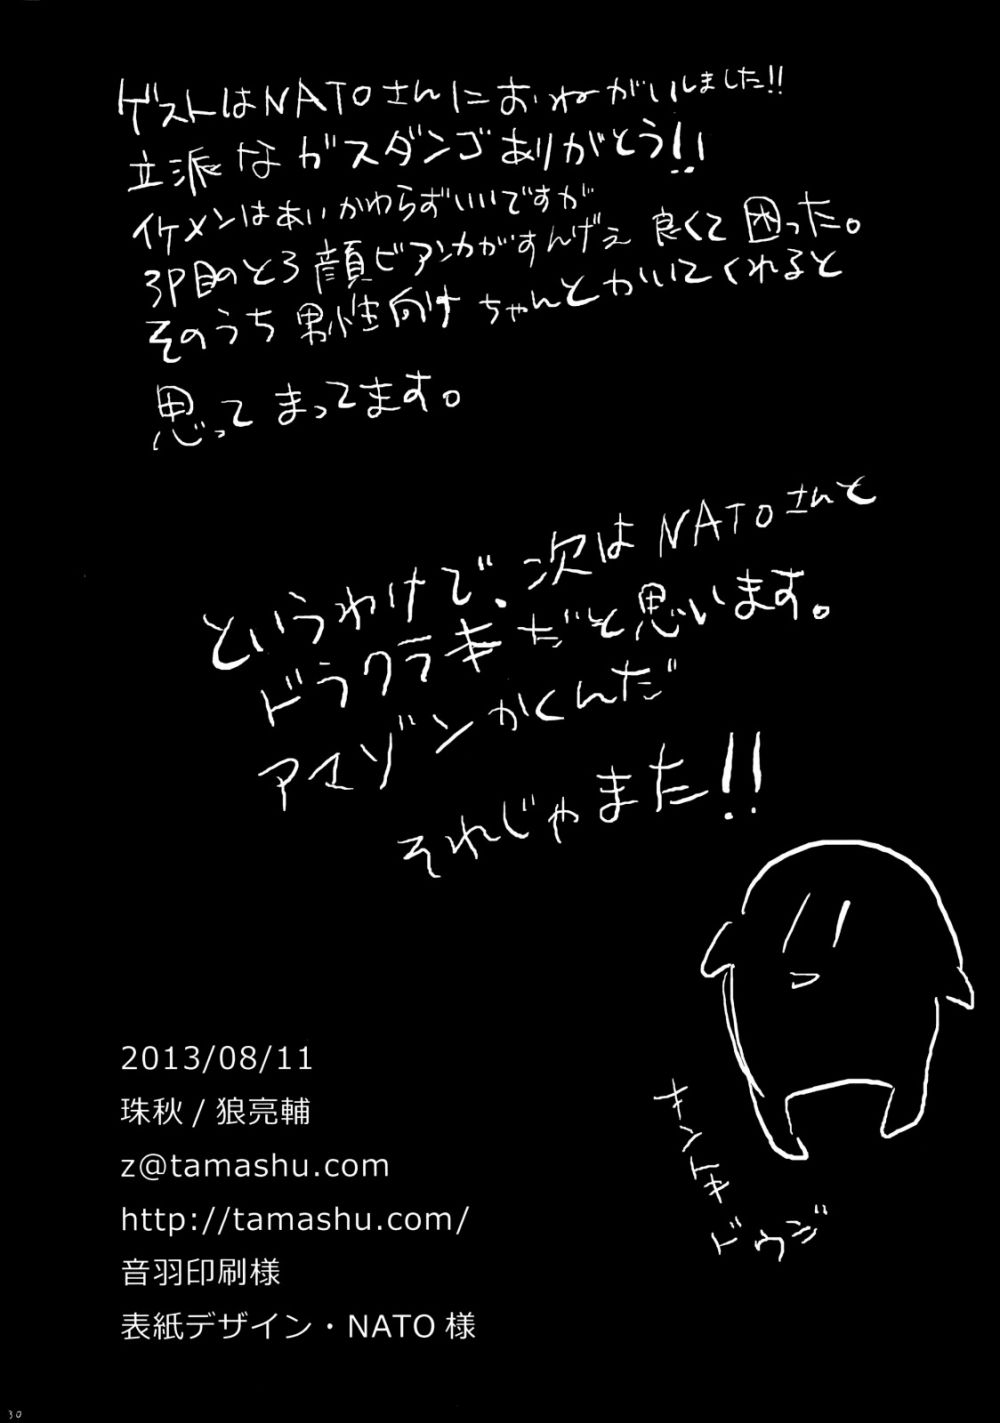 ゲストはNATOさんにおねがいしました!!
立派なガスダンゴありがとう!!
イケメンはあいかわらずいいですが
3P目のとろ顔ビアンカがすんげぇ良くて困った。
そのうち男性向けちゃんとかいてくれると
思ってまってます。
というわけで、次はNATOさんと
ドラクラキだと思います。
アマゾンかくんだ
それじゃまた!!
2013/08/11
珠秋 / 狼亮輔
z@tamashu.com
http://tamashu.com/
音羽印刷様
表紙デザイン・NATO 様
ドウジ
30